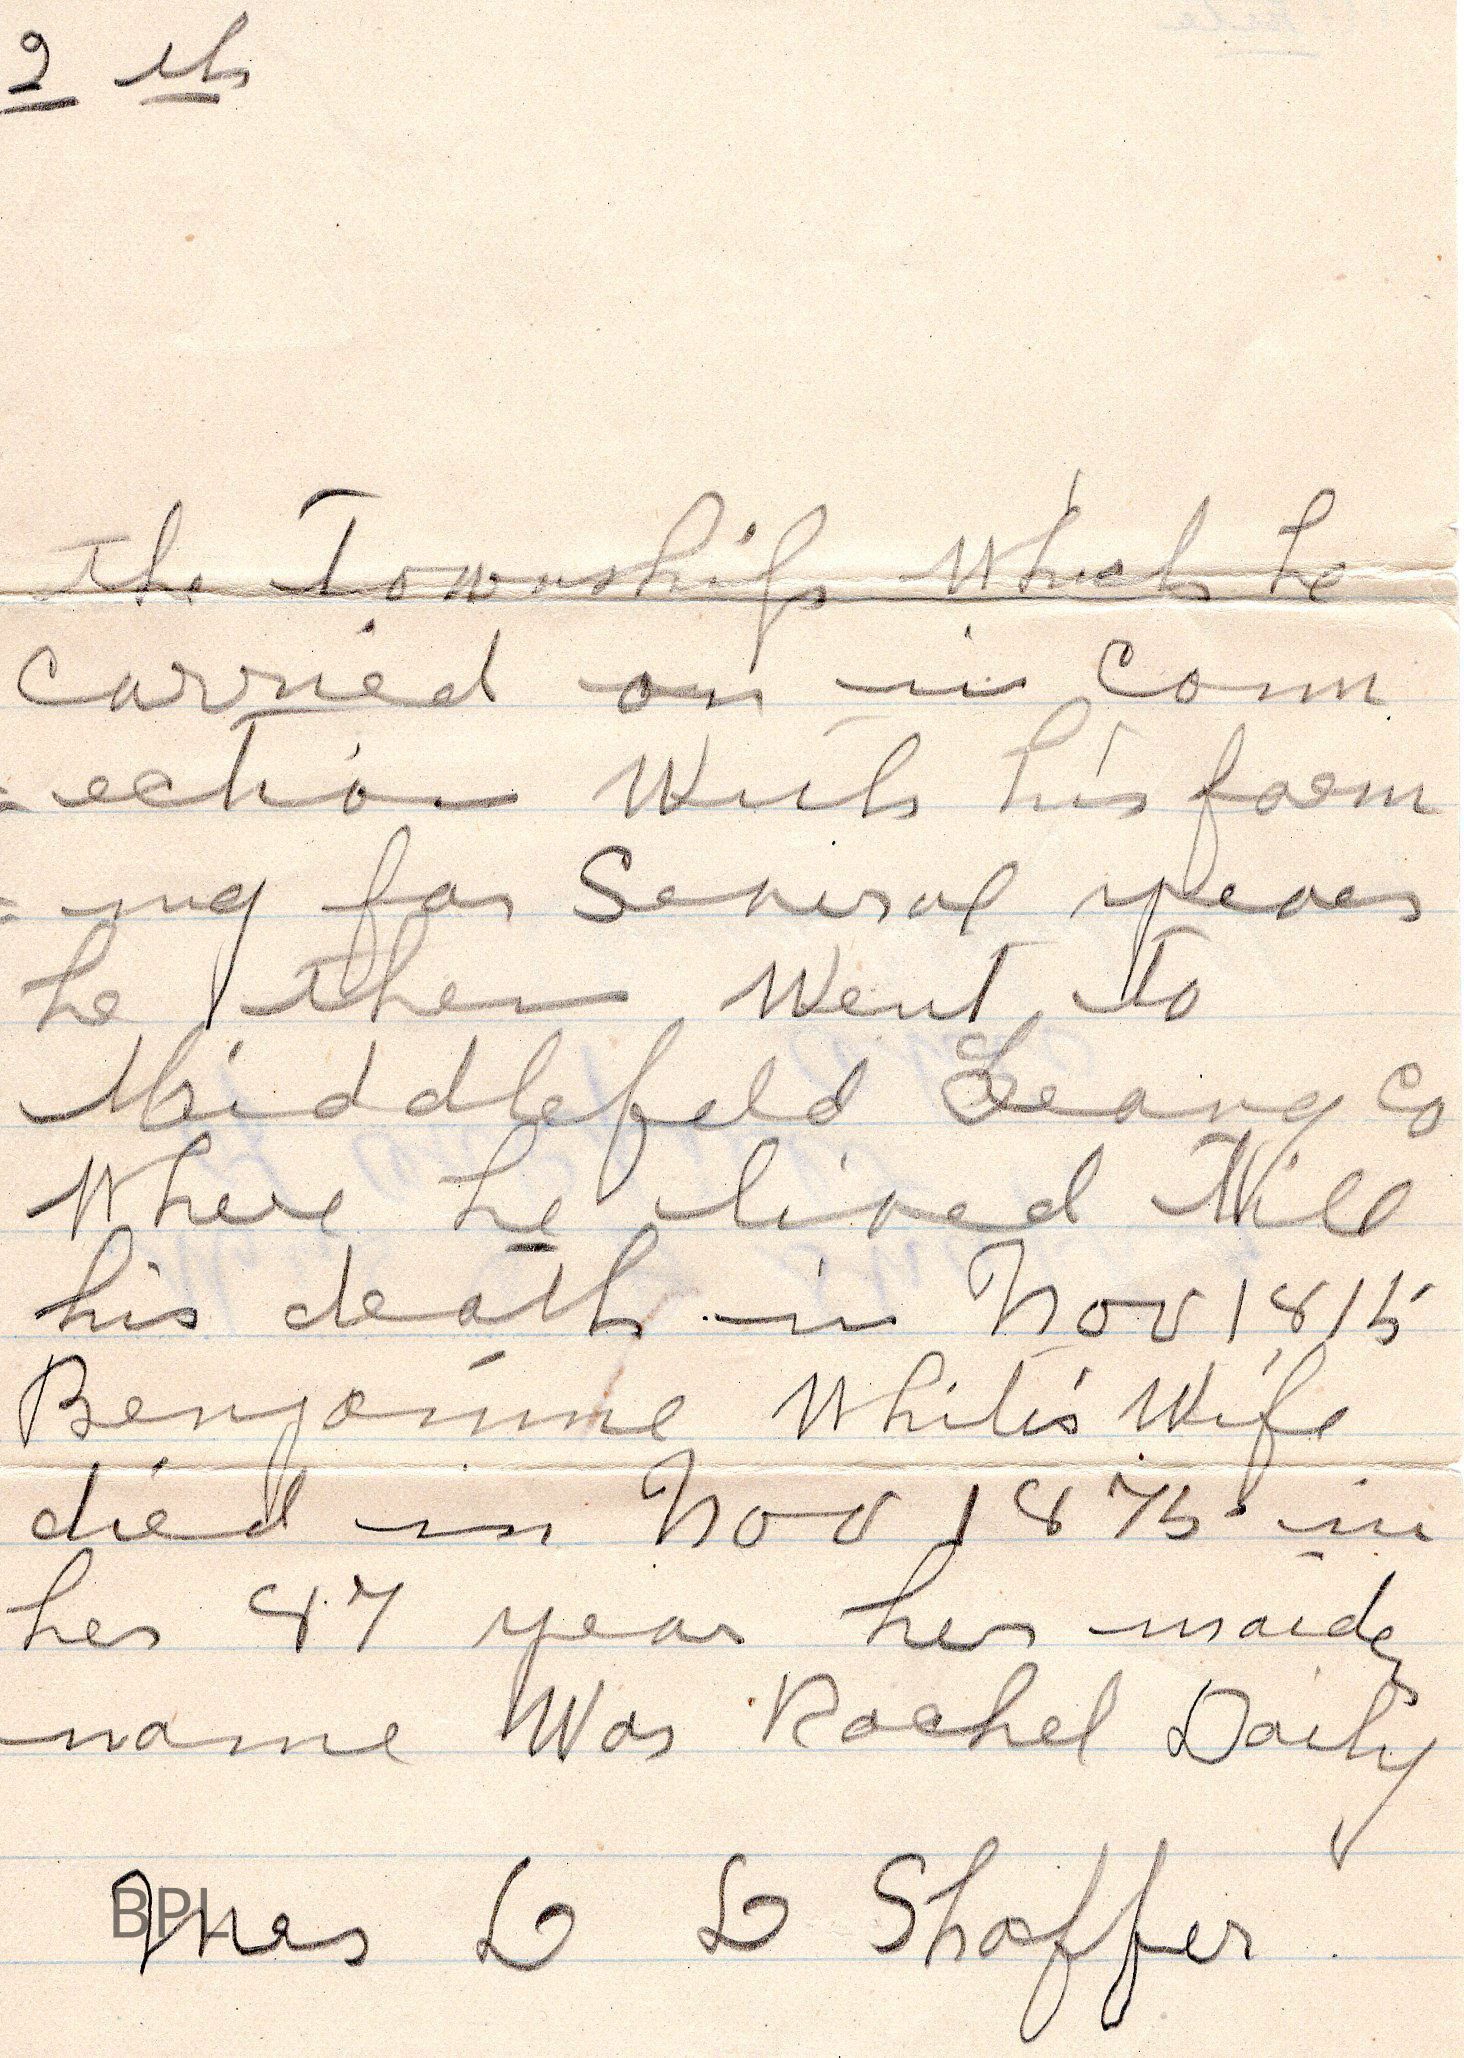 2 th
The Township Which he
carried on in Conn
= ection With his farm
= ing for Several years
he then Went to
Middlefeld Geaug Co
Where he lived Till
his death in Nov 1815
Benjamine White's Wife
died in Nov 1875 in
her 87 year her maiden
name Was Rachel Daily
Mrs L L Shaffer
BPL